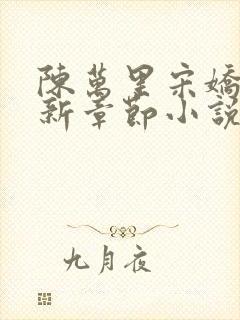 陳萬里宋嬌
新章節小說
九月夜